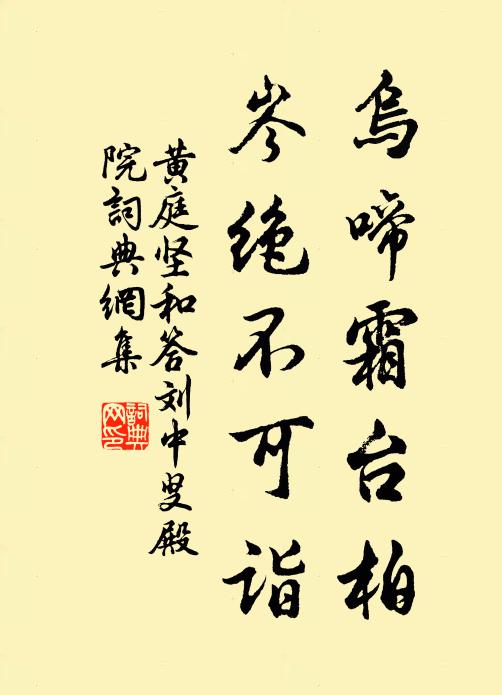 乌啼霜台柏
岑绝不可诣
黄庭坚和答刘中叟殿
院詞典網集
詞典网印